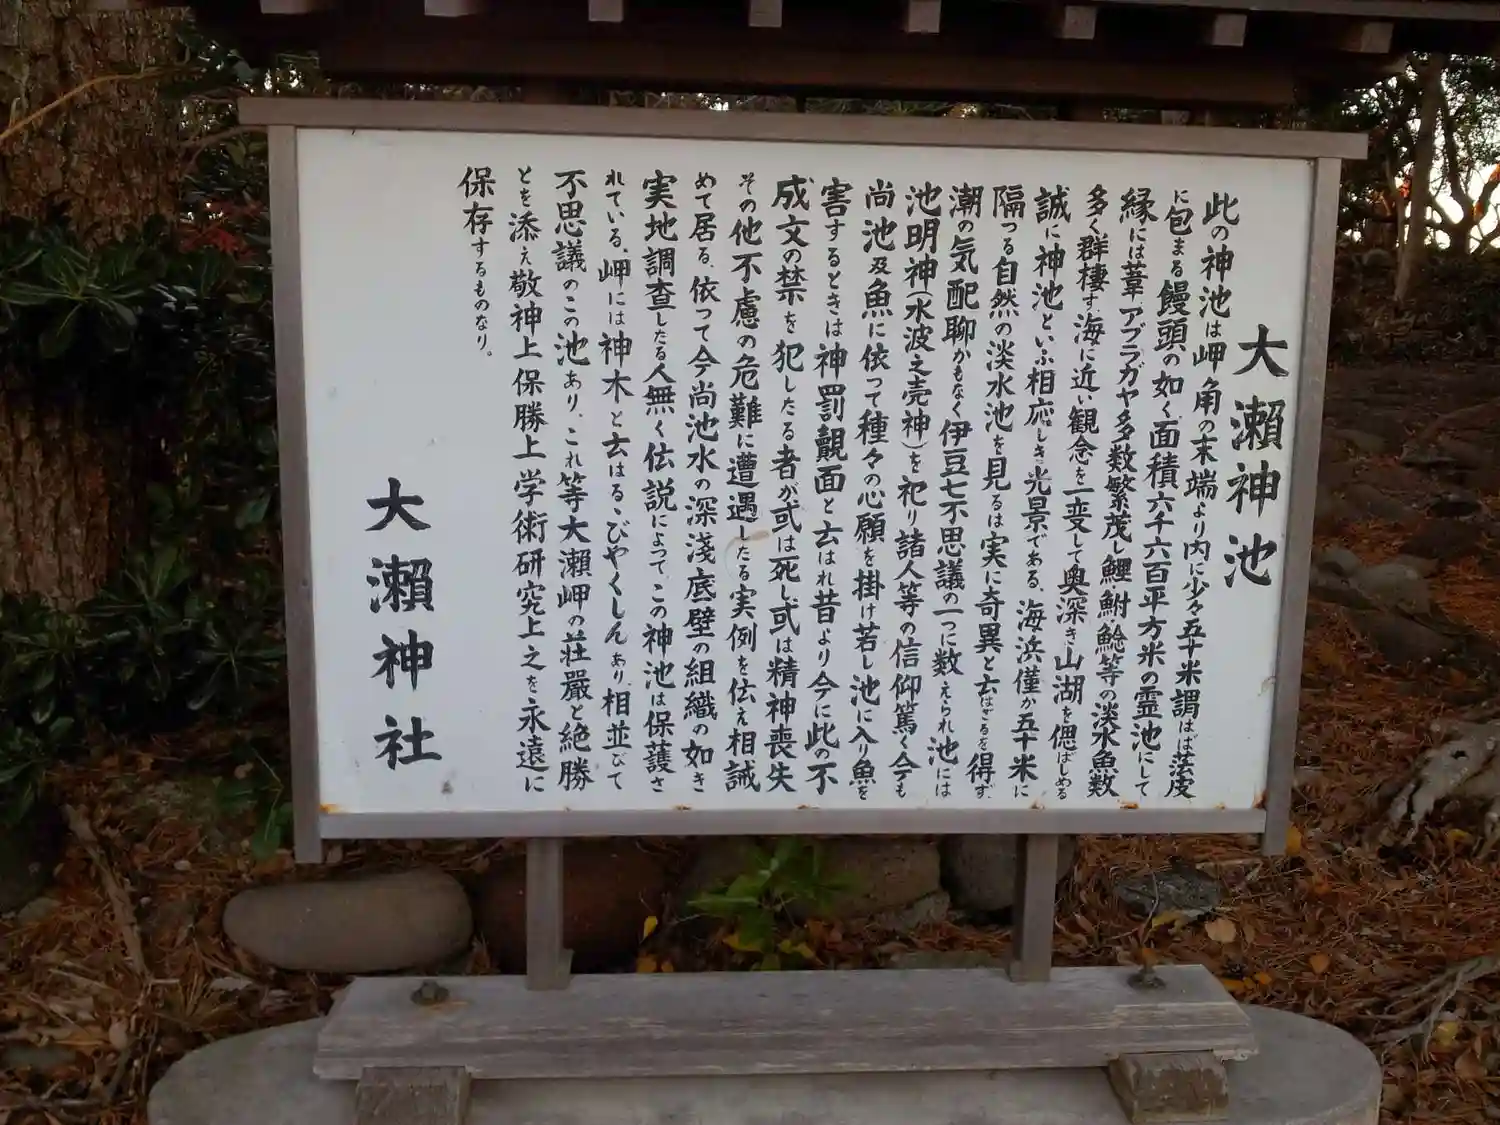 大瀬神池
此の神池は岬角の末端より内に少々五十米謂はば法皮
に包まる饅頭の如く、面積六千六百平方米の霊池にして
縁には葦、アブラガヤ多数繁茂し鯉、鮒、鯰等の淡水魚数
多く群棲す、海に近い観念を一変して奥深き山湖を偲ばしめる
誠に神池といふ相応しき光景である、海浜僅か五十米に
隔つる自然の淡水池を見るは実に奇異と云はざるを得ず、
潮の気配聊かもなく伊豆七不思議の一つに数えられ池には
池明神(水波之売神)を祀り諸人等の信仰篤く今も
尚池及魚に依つて種々の心願を掛け若し池に入り魚を
害するときは神罰覿面と云はれ昔より今に此の不
成文の禁を犯したる者が或は死し、或は精神喪失
その他不慮の危難に遭遇したる実例を伝え相誡
めて居る、依つて今尚池水の深淺底壁の組織の如き
実地調査したる人無く伝説によつてこの神池は保護さ
れている。岬には神木と云はるゝびやくしんあり、相並びて
不思議のこの池あり、これ等大瀬岬の荘嚴と絶勝
とを添え敬神上保勝上学術研究上之を永遠に
保存するものなり。
大瀬神社